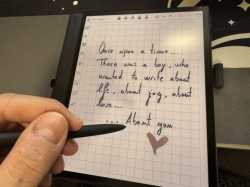 Once upon a time...
There was a boy, who
wanted to write about
life, about joy, about
love...
... About you